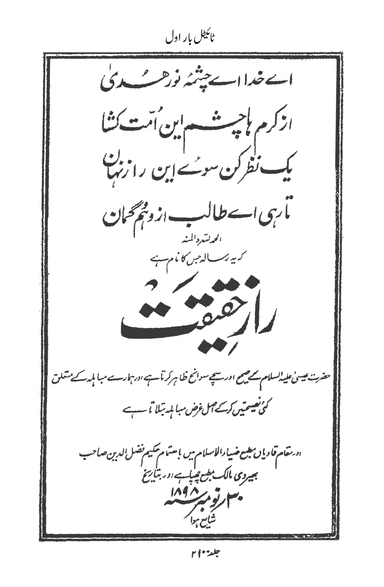 ٹائیٹل بار اول
اے خدا اے چشمۂ نور ھدیٰ
از کرم ہا چشم این اُمّت کشا
یک نظر کن سوے این راز نہان
تا رہی اے طالب از وہم و گمان
الحمد للہ والمنہ
کہ یہ رسالہ جس کا نام ہے
راز حقیقت
حضرت عیسیٰ علیہ السلام کے صحیح اور سچے سوانح ظاہر کرتا ہے اور ہمارے مباہلہ کے متعلق
کئی نصیحتیں کر کے اصل غرض مباہلہ بتلاتا ہے
اور مقام قادیان مطبع ضیاء الاسلام میں باہتمام حکیم فضل الدین صاحب
بھیروی مالک مطبع چھپا ہے اور بتاریخ
۳۰ نومبر ۱۸۹۸ سنہ
شایع ہوا
جلد ۲۱۰۰